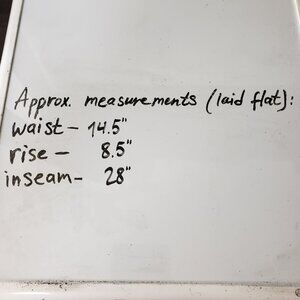 Approx. measurements (laid flat):
waist - 14.5"
rise - 8.5"
inseam - 28"